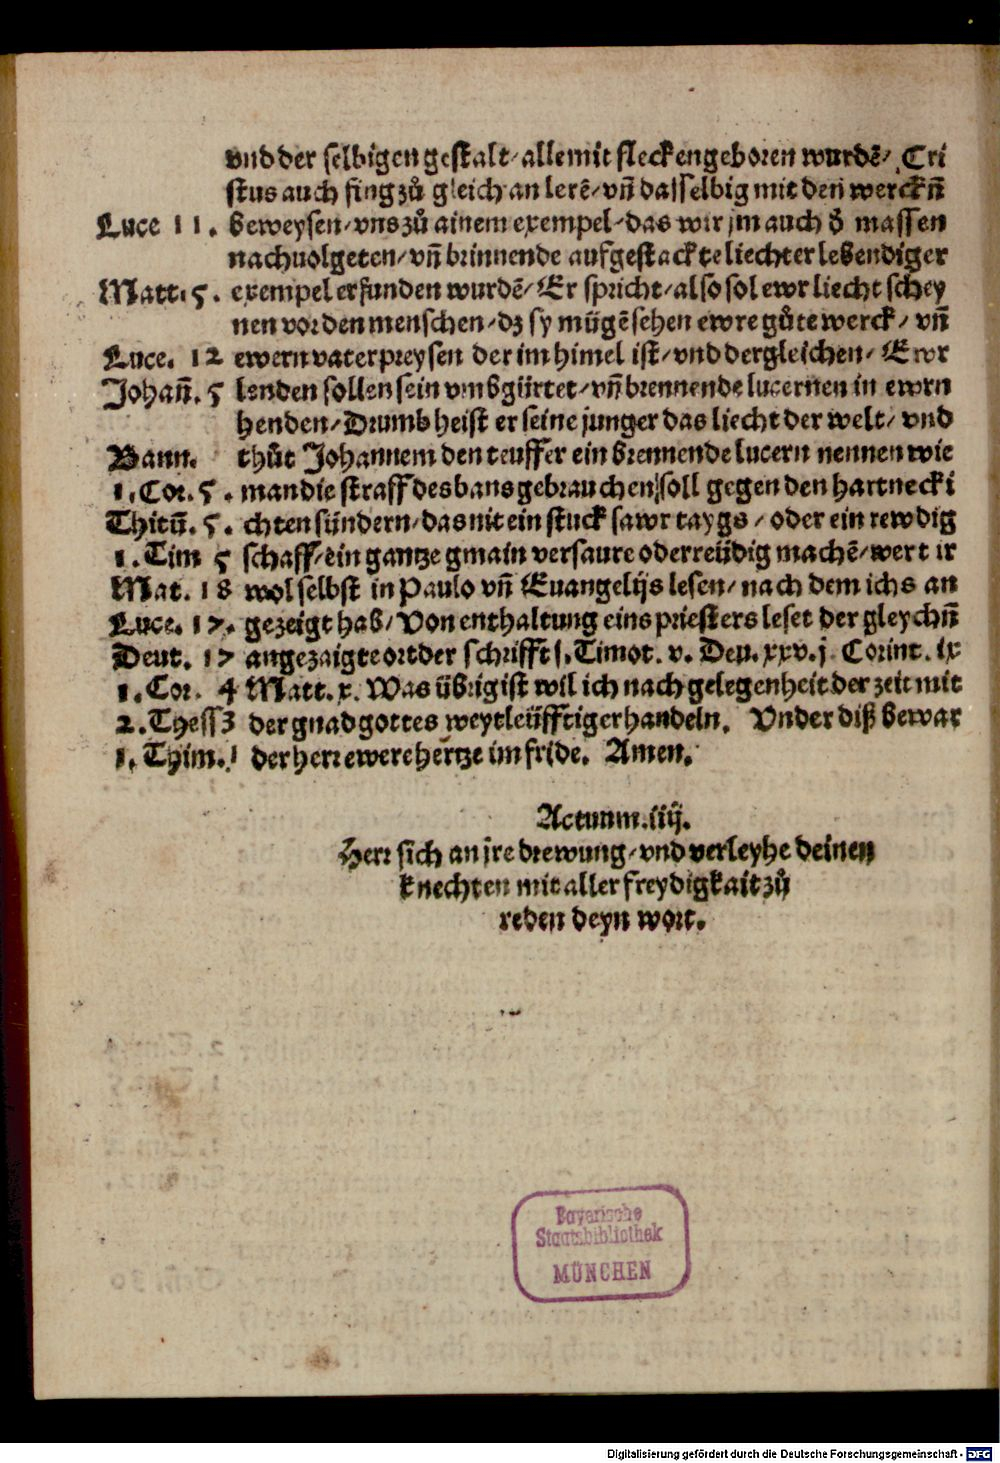 vnd der selbigen gestalt/ alle mit flecken geboren wurdē/ Cri
stus auch fing zů gleich an lerē/ vñ dasselbig mit den werckñ
Luce 11. beweysen/ vns zů ainem exempel/ das wir jm auch ð massen
nachuolgeten/ vñ brinnende aufgestackte liechter lebendiger
Matt. 5. exempel erfunden wurdē/ Er spricht/ also sol ewr liecht schey
nen vor den menschen/ dz sy mügē sehen ewre gůte werck/ vñ
Luce. 12 ewern vater preysen der im himel ist/ vnd dergleichen/ Ewr
Johañ. 5 lenden sollen sein vmbgürtet/ vñ brennende lucernen in ewrn
henden/ Drumb heist er seine junger das liecht der welt/ vnd
Bann. thůt Johannem den teuffer ein brennende lucern nennen wie
1. Cor. 5. man die straff des bans gebrauchen soll gegen den hartnecki
Thitū. 5. chten sündern/ das nit ein stuck sawr taygs/ oder ein rewdig
1. Tim 5 schaff/ ein gantze gmain versaure oder reüdig machē/ wert ir
Mat. 18 wol selbst in Paulo vñ Euangelijs lesen/ nach dem ichs an
Luce. 17. gezeigt hab/ Von enthaltung eins priesters leset der gleychñ
Deut. 17 angezaigte ort der schrifft j. Timot. v. Deu. xxv. j Corint. ix
1. Cor. 4 Matt. x. Was übrig ist wil ich nach gelegenheit der zeit mit
2. Thess 3 der gnad gottes weytleüfftiger handeln. Vnder diß bewar
1. Thim. 1 der herr ewere hertze im fride. Amen.
Actuum. iiij.
Herr sich an jre drewung/ vnd verleyhe deinen
knechten mit aller freydigkait zů
reden deyn wort.
Bayerische
Staatsbibliothek
MÜNCHEN
Digitalisierung gefördert durch die Deutsche Forschungsgemeinschaft - DFG